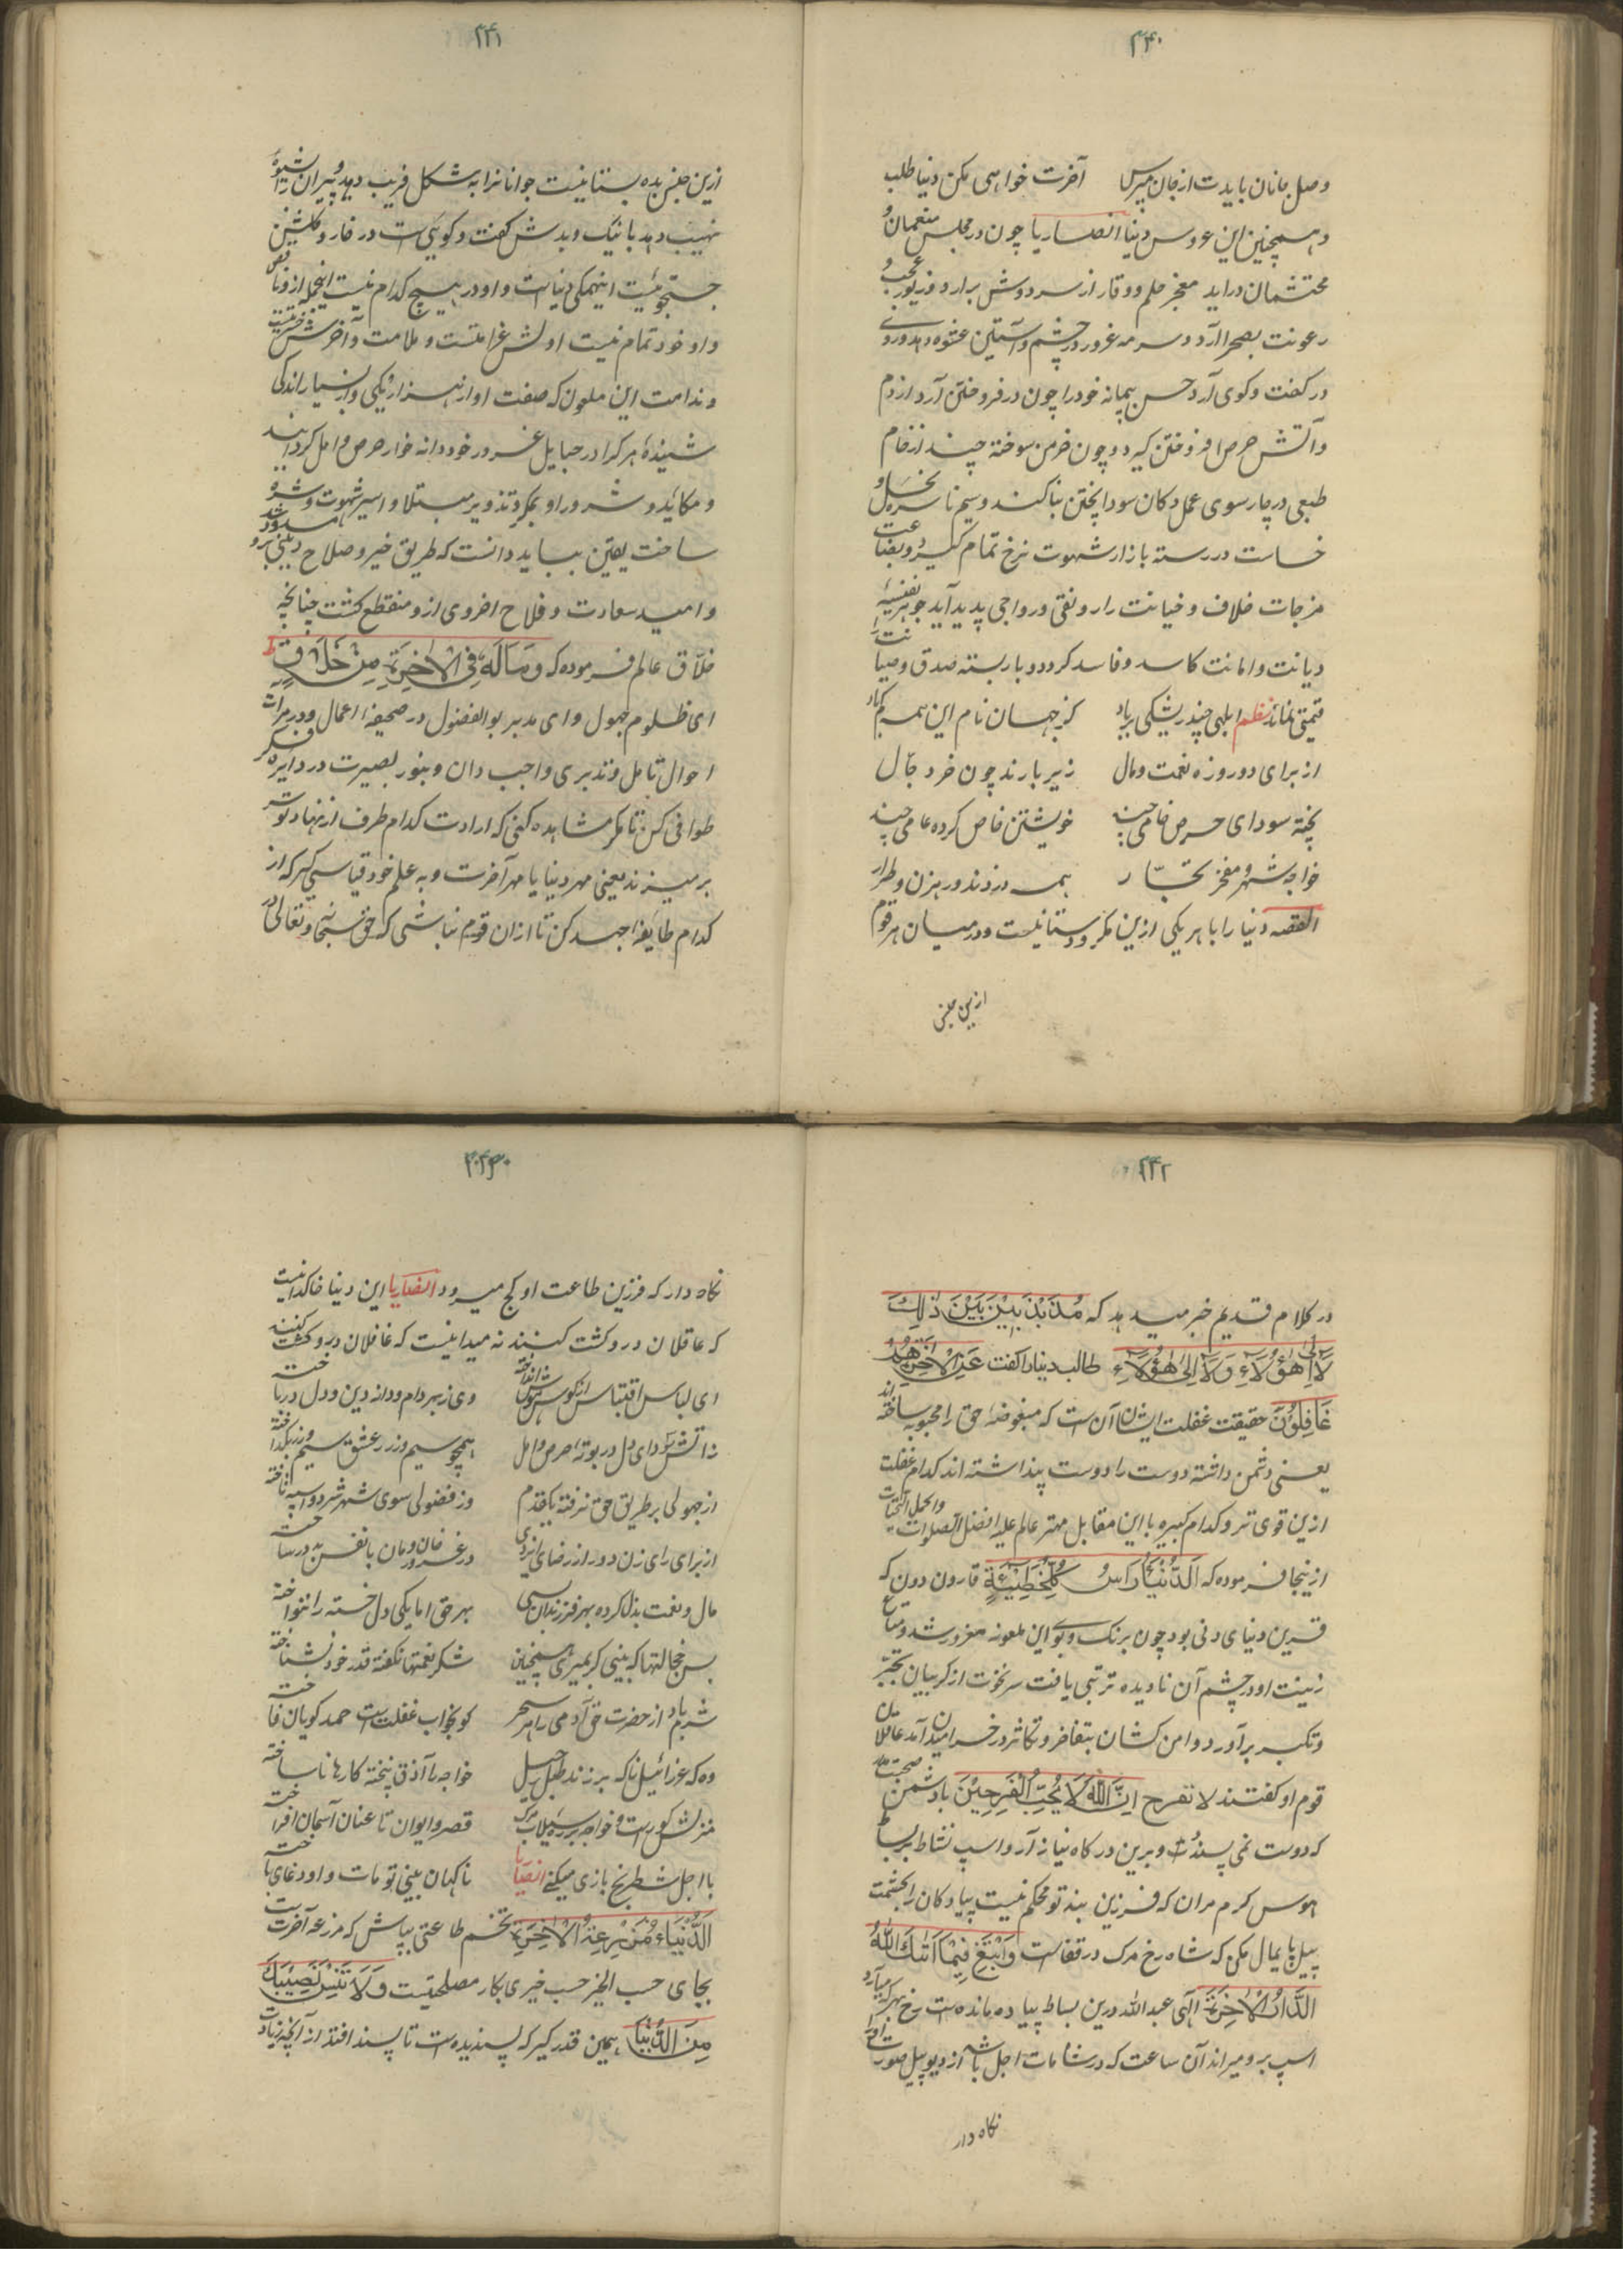 ۲۴۰
وصل جانان بایدت از جان مپرس آخرت خواهی مکن دنیا طلب
و همچنین این عروس دنیا انصاریا چون در مجلس منعمان و
محتشمان دراید معجز حلم و وقار از سر دوش بردارد و زیور عجب و
رعونت بصحرا آرد و سرمه غرور در چشم و آستین عشوه دهد و روی
در گفت و گوی آرد حسن پیمانه خود را چون در فروختن آرد از دم
و آتش حرص افروختن گیرد و چون خرمن سوخته چند از خام
طبعی در چار سوی عمل دکان سودا پختن بنا کنند و سیم ناسره بخل و
خساست در رسته بازار شهوت نرخ تمام گیرد و بضاعت
مزجات خلاف و خیانت را رونقی و رواجی پدید آید جوهر نفیسه
دیانت و امانت کاسد و فاسد گردد و بار بسته صدق و صیانت را
قیمتی نماند نظم ابلهی چند ریشکی بر باد کز جهان نام این همه کم باد
از برای دو روزه نعمت و مال زیر بارند چون خر دجّال
پخته سودای حرص خامی چند خویشتن خاص کرده عامی چند
خواجه شهر و مفخر تجّار همه دزدند و رهزن و طرار
القصه دنیا را با هر یکی ازین مکر و دستانیست و در میان هر قوم
ازین جنس
۲۴۱
ازین جنس بده بستانیست جوانانرا به شکل فریب دهد و پیرانرا بشیوه
نهیب دهد با نیک و بدش گفت و گوئی است در خار و گلشن
جستجوئیست اینهمگی دنیاست و او در هیچ کدام نیست اینجمله ازو ناقص
و او خود تمام نیست اولش غرامتست و ملامت و آخرش حسرتست
و ندامت این ملعون که صفت او از هزار یکی و از بسیار اندکی
شنیدهٔ هر کرا در حبایل غرور خود دانه خوار حرص و امل گردانید
و مکائد و شرور او بمکر و تذویر مبتلا و اسیر شهوت و شره
ساخت یقین بباید دانست که طریق خیر و صلاح دینی برو مسدود شد
و امید سعادت و فلاح اخروی ازو منقطع گشت چنانچه
خلّاق عالم فرموده که وَمَالَهٗ فِی الْاٰخِرَةِ مِنْ خَلَاقٍ ط
ای ظلوم جهول و ای مدبر بوالفضول در صحیفهٔ اعمال و در مرات
احوال تامل و تدبری واجب دان و بنور بصیرت در دایره فکر
طوافی کن تا مگر مشاهده کنی که ارادت کدام طرف از نهاد تو سر
بر میزند یعنی مهر دنیا یا مهر آخرت و به علم خود قیاسی گیر که از
کدام طایفهٔ جهد کن تا ازان قوم نباشی که حق سبحانه و تعالی در
۲۴۲
در کلام قدیم خبر میدهد که مُذَبْذَبِیْنَ بَیْنَ ذٰلِكَ
لَا اِلٰی هٰؤُلَاءِ وَلَا اِلٰی هٰؤُلَاءِ طالب دنیا را گفت عَنِ الْاٰخِرَةِ هُمْ
غَافِلُوْنَ حقیقت غفلت ایشان آن است که مبغوضهٔ حق را محبوبه ساخته اند
یعنی دشمن داشته دوست را دوست پنداشته اند کدام غفلت
ازین قوی تر و کدام کبیره با این مقابل مهتر عالم علیه افضل الصلوات و اکمل التحیات
از ینجا فرموده که اَلدُّنْیَا رَاْسُ كُلِّ خَطِیْئَةٍ قارون دون که
قرین دنیای دنی بود چون برنک و بوی این ملعونه مغرور شد و متاع
زینت او در چشم آن نادیده ترتبی یافت سر نخوت از گریبان تجبّر
و تکبر برآورد و دامن کشان بتفاخر و تکاثر در خرامیدن آمد عاقلان
قوم او گفتند لا تفرح اِنَّ اللّٰهَ لَا یُحِبُّ الْفَرِحِیْنَ با دشمن صحبت مدار
که دوست نمی پسندد و برین درگاه نیاز آر و اسپ نشاط بر بساط
هوس گرم مران که فرزین بند تو محکم نیست پیادگان را بحشمت
پیل پایمال مکن که شاه رخ مرک در قفاست وَابْتَغِ فِیْمَا اٰتٰكَ اللّٰهُ
الدَّارَ الْاٰخِرَةَ الٓهی عبد الله درین بساط پیاده مانده است رخ بهر که میآرد
اسپ برو میراند آن ساعت که در شامات اجل باشد از دیو پیل صورت اورا
نگاه دار
۲۴۳
نگاه دار که فرزین طاعت او کج میرود انصاریا این دنیا خاکدانیست
که عاقلان در و کشت کنند نه میدانیست که غافلان درو گشت کنند
ای لباس اقتباس از گوش هوش انداخته وی ز بهر دام و دانه دین و دل در باخته
ز آتش سودای دل در بوته حرص و امل همچو سیم و زر ز عشق سیم و زر بگداخته
از جهولی بر طریق حق نرفته یکقدم وز فضولی سوی شهر شر دو اسپه تاخته
از برای رای زن دور از رضای ایزدی در غرور خان و مان با نفس بد در ساخته
مال و نعمت بذل کرده بهر فرزندان بسی بهر حق اما یکی دل خسته را ننواخته
بس خجالتها که بینی گر بمیری همچنین شکر نعمتها نکفته قدر خود نشناخته
شرم باد از حضرت حق آدمی را هر سحر کو بخواب غفلت است حمد گویان فاخته
وه که عزرائیل ناکه بر زند طبل رحیل خواجه ما آذق پخته کارها ناساخته
منزلش گورست و خواجه بر ره سیلاب مرک قصر و ایوان تا عنان آسمان افراخته
با اجل شطرنج بازی میکنی انصاریا ناگهان بینی تو مات و او دغای باخته
اَلدُّنْیَاءُ مَزْرَعَةُ الْاٰخِرَةِ تخم طاعتی بپاش که مزرعه آخرتست
بجای حسب الخیر حسب خیری بکار مصلحتیست وَلَا تَنْسَ نَصِیْبَكَ
مِنَ الدُّنْیَا همین قدر گیر که پسندیده است تا پسند افتد از آنچه زیادت